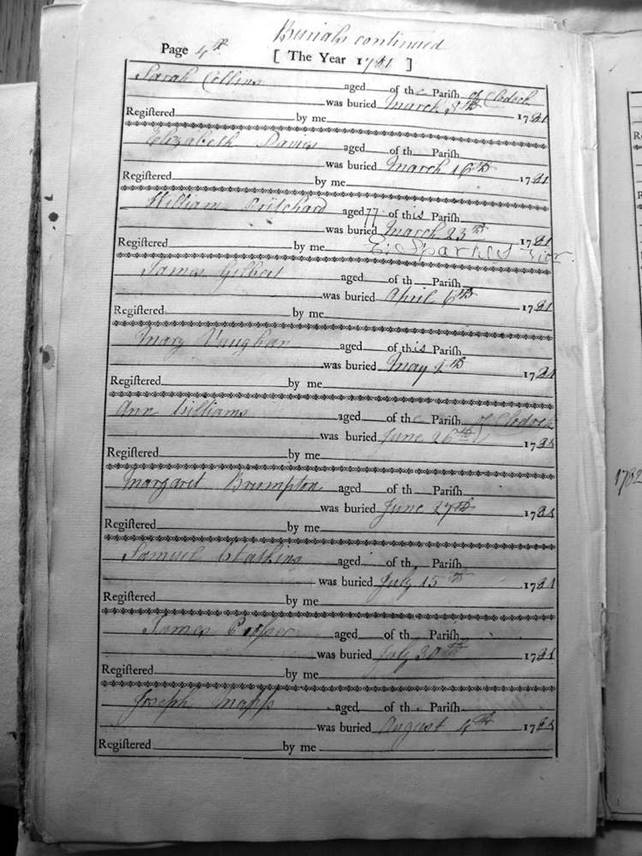 Burials continued
Page 4th
[ The Year 1781 ]
Sarah Collins aged of the Parish of Clodock
was buried March 8th 1781
Regiſtered by me
Elizabeth Davies aged of th Pariſh
was buried March 16th 1781
Regiſtered by me
William Pritchard aged 77 of this Pariſh
was buried March 23rd 1781
Regiſtered by me
James Gilbert aged of th Pariſh
was buried April 6th 1781
Regiſtered by me
Mary Vaughan aged of this Pariſh
was buried May 1781
Regiſtered by me
Ann Williams aged of the Pariſh of Clodock
was buried June 26th 178
Regiſtered by me
Margaret Brumpton aged of th Pariſh
was buried June 27th 178
Regiſtered by me
Samuel aged of th Pariſh
was buried July 15th 1781
Regiſtered by me
James aged of th Pariſh
was buried July 30th 1781
Regiſtered by me
Joseph Mapp aged of th Pariſh
was buried August 4th 178
Regiſtered by me
1782